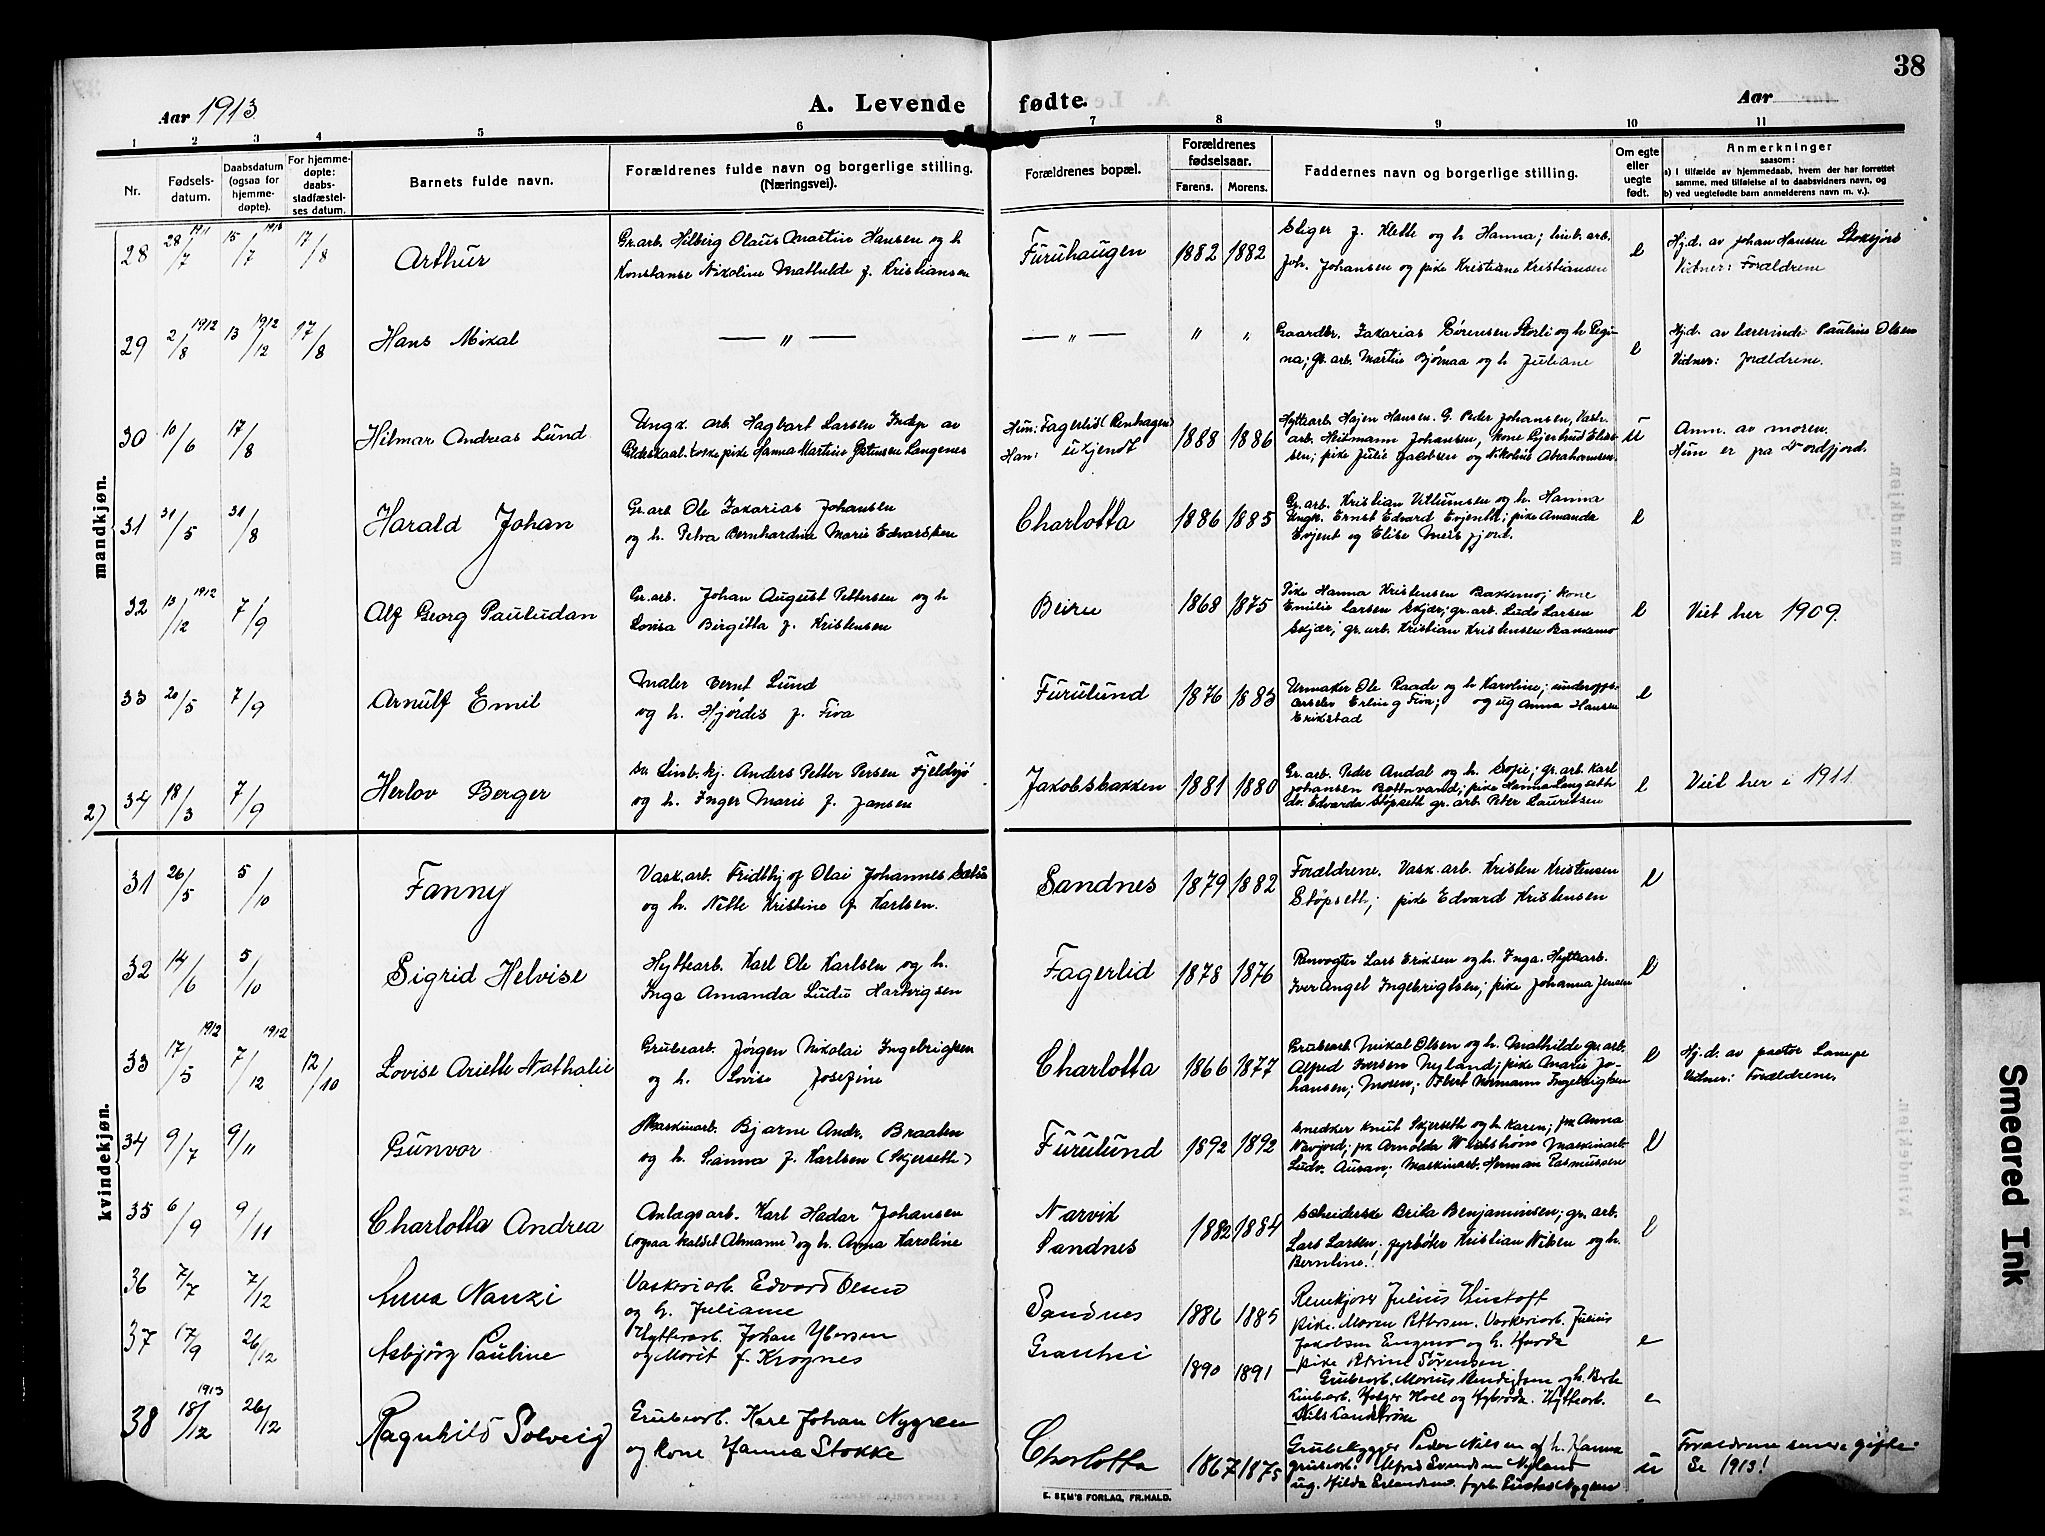 38
Aar 1913
A. Levende fødte.
Aar
1 2 3 4 5 6 7 8 9 10 11
Nr.
Fødsels-
datum.
Daabsdatum
(ogsaa for
hjemme-
døpte).
For hjemme-
døpte:
daabs-
stadfæstel-
ses datum.
Barnets fulde navn.
Forældrenes fulde navn og borgerlige stilling.
(Næringsvei).
Forældrenes bopæl.
Forældrenes
fødselsaar.
Farens. Morens.
Faddernes navn og borgerlige stilling.
Om egte
eller
uegte
født.
Anmerkninger
saasom:
a) I tilfælde av hjemmedaab, hvem der har forrettet
samme, med tilføielse af to daabsvidners navn, og
b) ved uegtefødte barn anmelderens navn m. v.).
mandkjøn.
28 28/7 1911 15/7 1912 17/8 Arthur
Gr.arb. Hilberg Olaus Martin Hansen og h
Konstanse Nikoline Mathilde f. Kristiansen
Furuhaugen 1882 1882
Stiger J. Klette og h Hanna; linb. arb.
Joh. Johansen og pike Kristiane Kristiansen
e
Hj.d. av Johan Hansen
Vidner: Forældrene
29 2/8 1912 13/12 1912 17/8 Hans Mikal
— " — — " — " "
Gaardbr. Zakarias Sørensen Storli og h Regi-
na; gr. arb. Martin Bjørnaa og h Juliane
e
Hj.d. av lærerinde Pauline Olsen
Vidner: forældrene.
30 10/6 17/8 Hilmar Andreas Lund
Ungk. arb. Hagbart Larsen Indp av
Gildeskaal pike Hanna Martine Langenes
Hun: Fagerlid
Han: ukjendt
1888 1886
Hyttearb. Hajen Hansen. G. Peder Johansen, Vask-
arb. Heitmann Johansen, kone Gjertrud
sen; pike Julie Jakobsen og Nikoline Abrahamsen
u
Anm. av moren.
Hun er fra
31 31/5 31/8 Harald Johan
Gr.arb Ole Zakarias Johansen
og h. Petra Bernhardine Marie Edvardsen
Charlotta 1886 1885
Gr.arb. Kristian og h. Hanna
Ungk. Ernst Edvard Evjenth; pike Amanda
Evjent og Elise Misfjord.
e
32 13/12 1912 7/9 Alf Georg Pauludan
Gr.arb. Johan August Pettersen og h
Lovisa Birgitta f. Kristensen
Beiru 1868 1875
Pike Hanna Kristensen Bakkemo; kone
Emilie Larsen Skjær; gr.arb. Ludv Larsen
Skjær; gr.arb. Kristian Kristensen Bakkemo
e
Viet her 1909.
33 20/5 7/9 Arnulf Emil
Maler Bernt Lund
og h. Hjørdis f. Fiva
Furulund 1876 1883
Urmaker Ole Raade og h Karoline; underopps-
Erling Fiva; og ug Anna Hansen
Erikstad
e
2) 34 18/3 7/9 Herlov Berger
Linb.kj. Anders Petter Persen Fjeldsjø
og h. Inger Marie f. Jansen
Jakobsbakken 1881 1880
Gr.arb. Peder Andal og h. Sofie; gr.arb. Karl
Johansen Bottnvand; pike Hanna Langseth
do. Edvarda Støpseth gr.arb. Peter Lauritsen
e
Viet her i 1911
kvindekjøn.
31 26/5 5/10 Fanny
Vask.arb. Fridthjof Olai Johannes
og h. Nette Kristine f Karlsen.
Sandnes 1879 1882
Forældrene. Vask.arb. Kristen Kristensen
Støpseth; pike Edvard Kristensen
e
32 14/6 5/10 Sigrid Helvise
Hyttearb. Karl Ole Karlsen og h.
Inga Amanda Ludv Hartvigsen
Fagerlid 1878 1876
Renvogter Lars Eriksen og h. Inga. Hyttearb.
Iver Angel Ingebrigtsen; pike Johanna Jensen
e
33 17/5 1912 7/12 1912 12/10 Lovise Ariette Nathalie
Grubearb. Jørgen Nikolai Ingebrigtsen
og h. Lovise Josefine
Charlotta 1866 1877
Grubearb. Mikal Olsen og h. Mathilde gr.arb.
Alfred Nyland; pike Marie Jo-
hansen; Moren; Normann Ingebrigtsen
e
Hj.d. av pastor Lampe
Vidner: Forældrene.
34 9/7 9/11 Gunvor
Maskinarb. Bjarne Andr. Braaten
og h. Sanna f. Karlsen (Skjerseth)
Furulund 1892 1892
Snedker Knut Skjerseth og h Karen; frk Anna
Navjord; frk Arnolda Maskinarb
Ludv. Aunan; Maskinarb. Herman Rasmussen
e
35 6/9 9/11 Charlotta Andrea
Anlagsarb. Karl Hadar Johansen
(ogsaa kaldet Almanne) og h. Anna Karoline
Narvik
Sandnes
1882 1884
Scheiderske Brita Benjaminsen; gr. arb.
Lars Larsen; fyrbøter Kristian Nilsen og h.
Berntine!
e
36 7/7 7/12 Anna Nanzi
Vaskeriarb. Edvard Olsen
og h. Julianne
Sandnes 1886 1885
Remkjører Julius Thustoft
pike. Maren Pettersen. Vaskeriarb. Julius
Jakobsen Engmo og h. Harda
– pike Petrine Sørensen
e
37 17/9 26/12 Asbjørg Pauline
Hyttearb. Johan Ybersen
og Marit f. Krognes
Grønli
1890 1891
Grubearb. Marius Bendigtsen og h. Berte
Linbearb. Holger Hoel og Hybroda. Hyttearb.
– Nils Landstrøm
e
38 18/12 1913 26/12 Ragnhild Solveig
Grubearb. Karl Johan Nygren
og kone Hanna Stokke
Charlotta 1867 1875
Grubebygger Peder Nilsen og h. Hanna
grubearb. Alfred Svendsen Nyland
ug. Hilda Erlandsen. fyrb. Gustav Nygren
u
Forældrene senere gifte
Se 1913!
E. SEM'S FORLAG, FR.HALD.
Smeared Ink